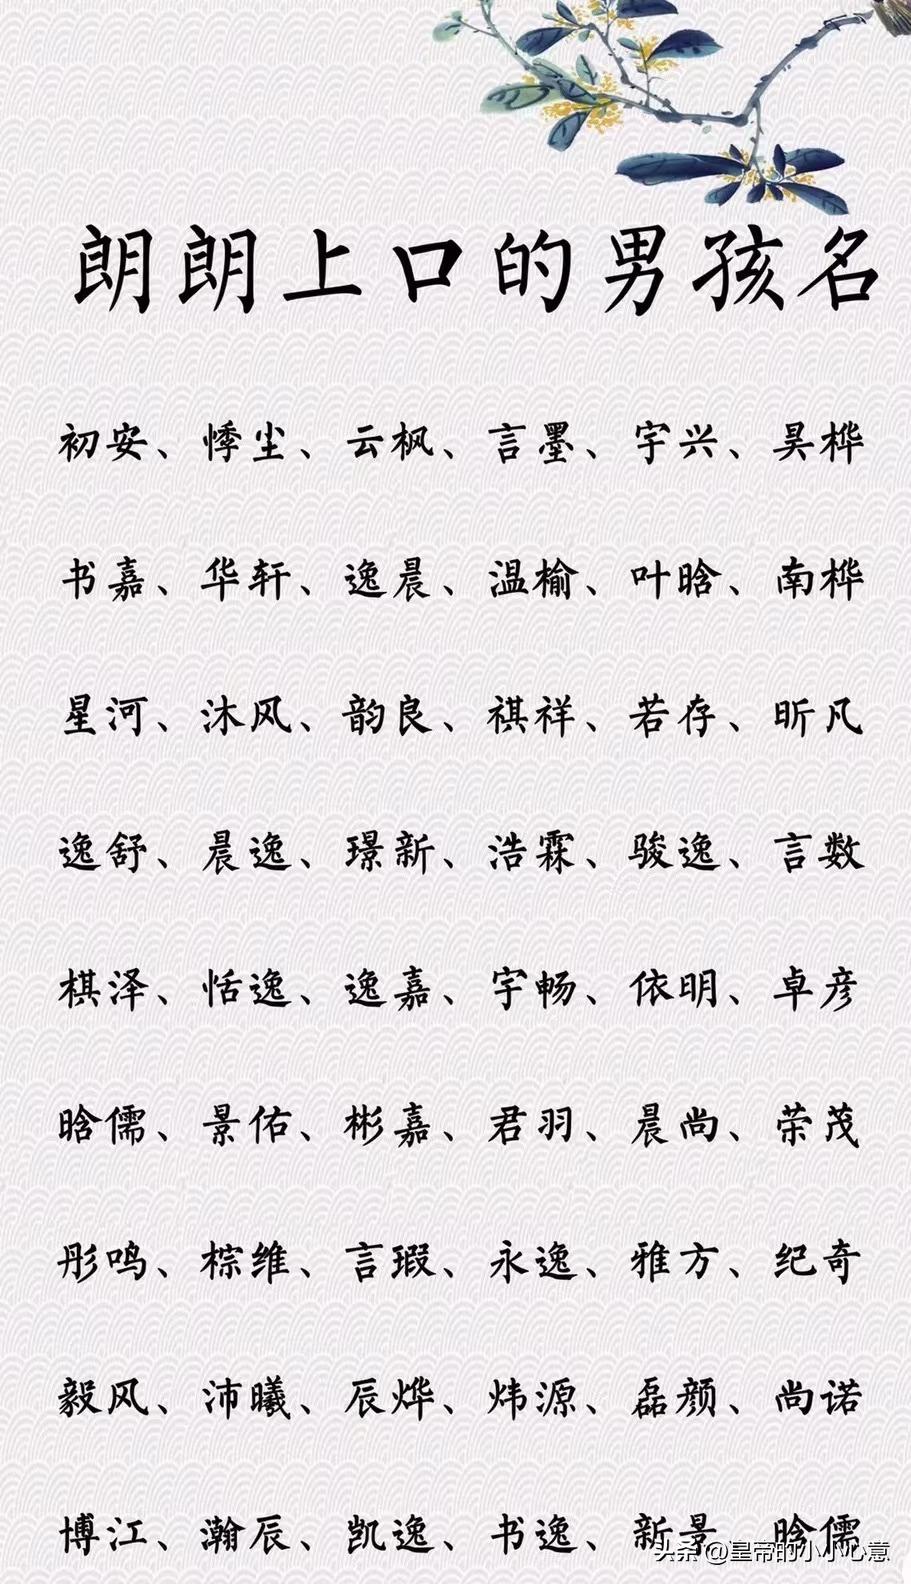 朗朗上口的男孩名
初安、悸尘、云枫、言墨、宇兴、昊桦
书嘉、华轩、逸晨、温榆、叶晗、南桦
星河、沐风、韵良、祺祥、若存、昕凡
逸舒、晨逸、璟新、浩霖、骏逸、言数
棋泽、恬逸、逸嘉、宇畅、依明、卓彦
晗儒、景佑、彬嘉、君羽、晨尚、荣茂
彤鸣、棕维、言瑕、永逸、雅方、纪奇
毅风、沛曦、辰烨、炜源、磊颜、尚诺
博江、瀚辰、凯逸、书逸、新景、晗儒
头条 @皇帝的小小心意